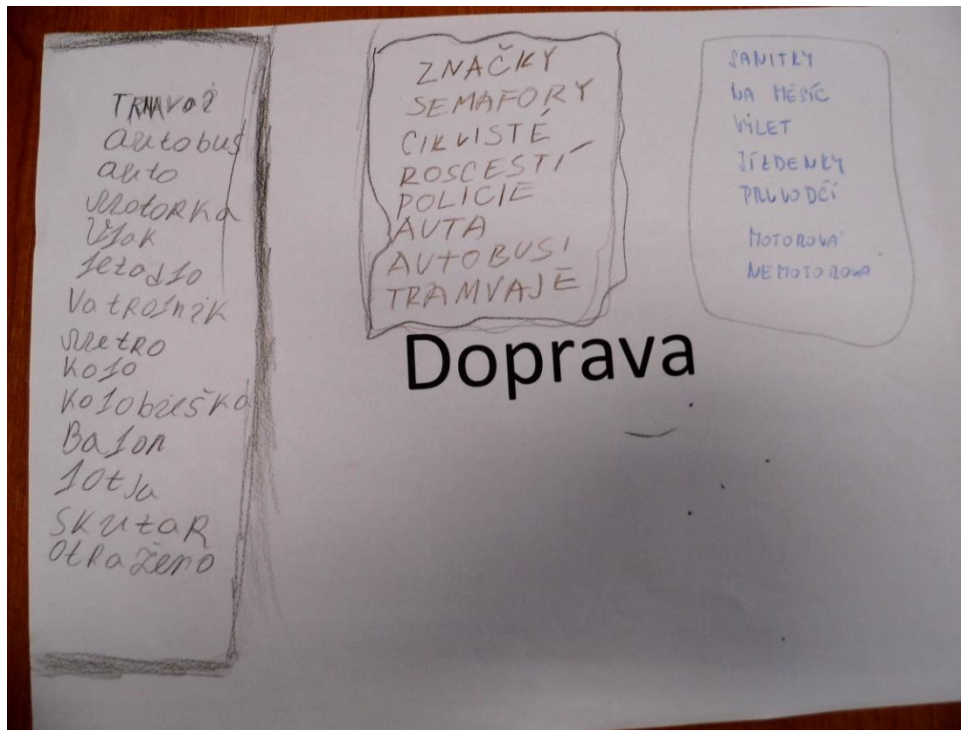 autobus
auto
motorka
vlak
letadlo
Vatrolnik
metro
kolo
koloběška
Balon
lotja
SKutaR
otRaženo
ZNAČKY
SEMAFORY
CIKLISTÉ
ROSCESTÍ
POLICIE
AUTA
AUTOBUSI
TRAMVAJE
SANITKY
NA MĚSÍC
VÝLET
JÍZDENKY
PRUVODČÍ
MOTOROVÁ
NEMOTOROVÁ
Doprava